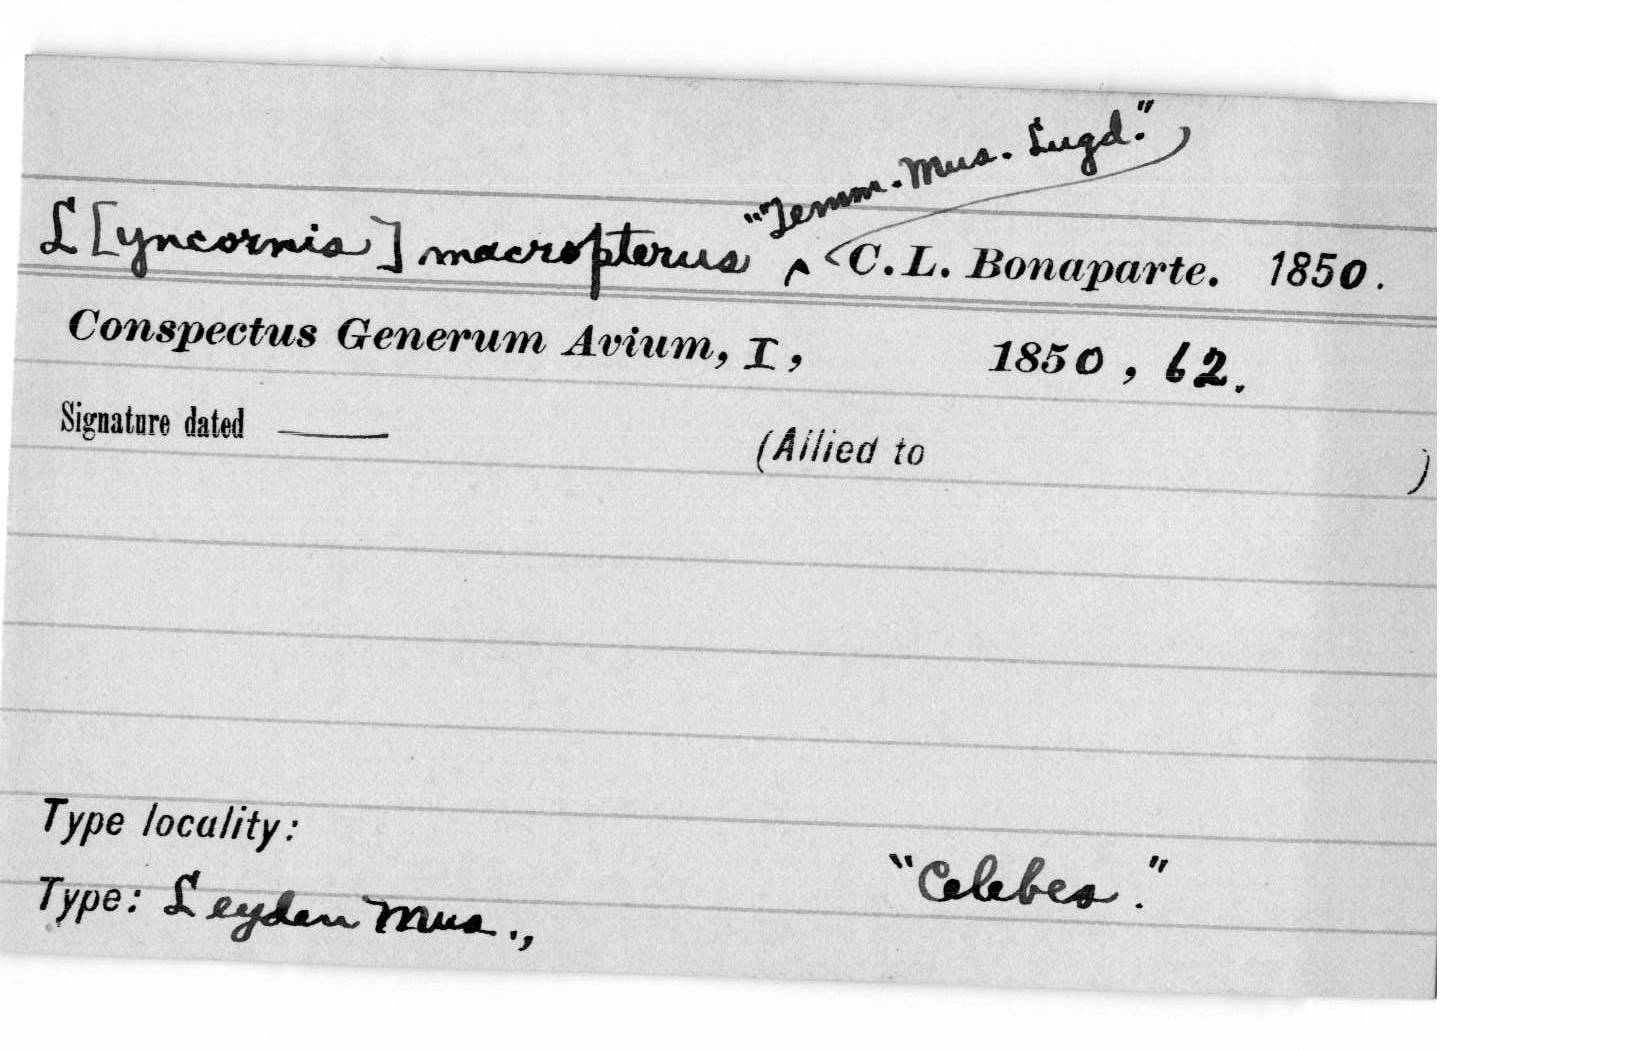 "Temm. Mus. Lugd."
L[yncornis] macropterus ^ C. L. Bonaparte. 1850.
Conspectus Generum Avium, I, 1850, 62.
Signature dated ____
(Allied to )
Type locality:
"Celebes."
Type: Leyden Mus.,